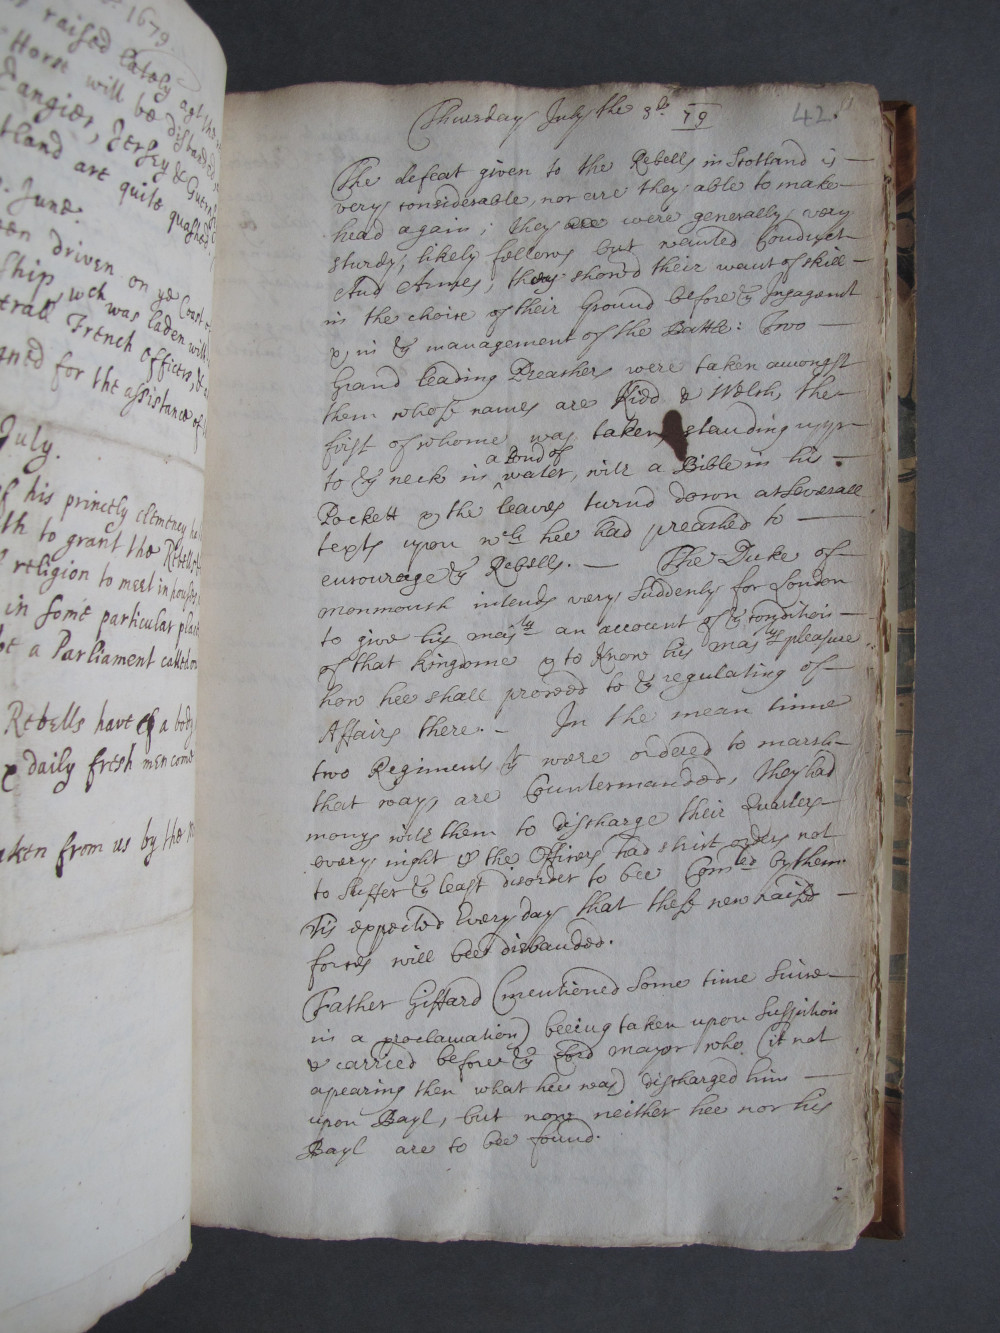 1679.
raised lately agt the
Horse will be disbanded
Tangier, Jersey & Guern
tland are quite quashed.
June.
een driven on ye Coast of
Ship, wch was laden with
erall French Officers, &
ned for the assistance of
July.
of his princely clemency ha
th to grant the Rebells
religion to meet in houses
in some particular place
ot a Parliament called on
Rebells have a body
& daily fresh men come
aken from us by the
Thursday July the 3d. 79
42.
The defeat given to the Rebells in Scotland is —
very considerable, nor are they able to make —
head again; they were generally very
sturdy, likely fellows but wanted Conduct —
And Armes, they showd their want of skill —
in the choice of their Ground before ye Ingagemt
& in ye management of the Battle: Two —
Grand leading Preachers were taken amongst
them whose names are Kidd & Welsh, the —
first of whome was taken standing upp —
to ye neck in a Pond of water, with a Bible in his —
Pockett & the leaves turnd down at Severall
texts upon wch hee had preached to —
encourage ye Rebells. — The Duke of —
Monmouth intends very Suddenly for London
to give his Maity an account of ye condition —
of that Kingdome & to Know his Maitys pleasure
how hee shall proceed to ye regulating of —
Affairs there. — In the mean time
two Regiments yt were ordered to march —
that way, are Countermanded, They had
mony with them to discharge their Quarters —
every night & the Officers had strict orders not
to Suffer ye least disorder to bee Comted by them.
Tis expected Every day that these new raisd —
forces will bee disbanded.
Father Giffard (mentioned Some time Since —
in a proclamation) beeing taken upon Suspition
& carried before ye Lord Mayor who (it not
apearing then what hee was) discharged him —
upon Bayl, but now neither hee nor his
Bayl are to bee found.